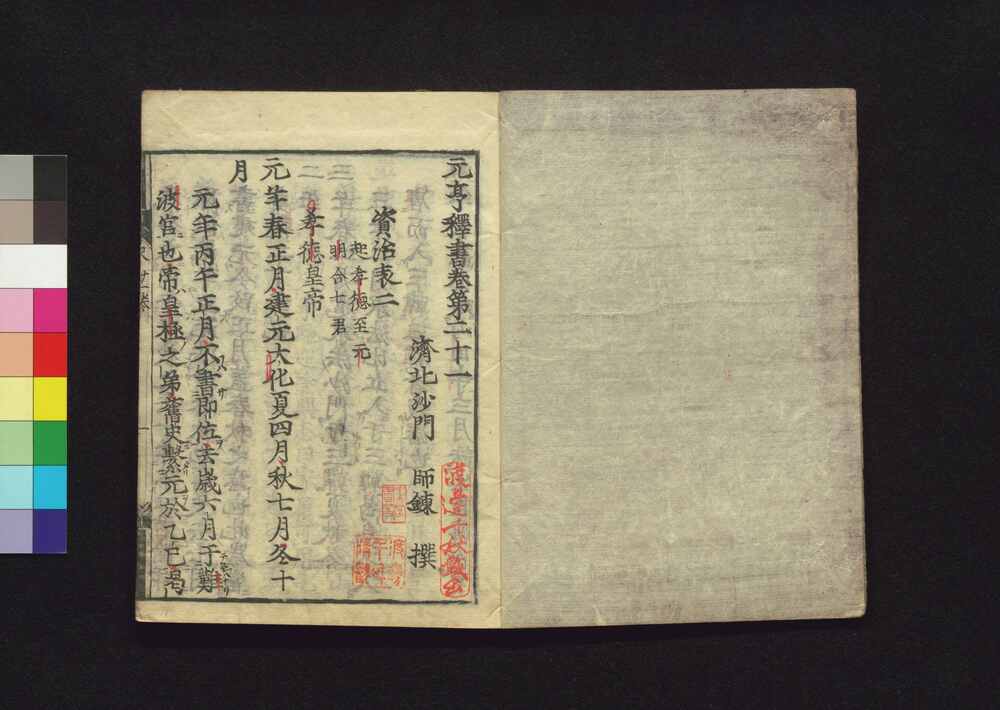 元亨釋書卷第二十一
濟北沙門 師錬 撰
資治表二
起孝德至元
明合七君
孝德皇帝
元年春正月建元大化夏四月秋七月冬十
月
元年丙午正月不書即位去歲六月于難
波宮也帝皇極之弟舊史繫元於乙巳曷